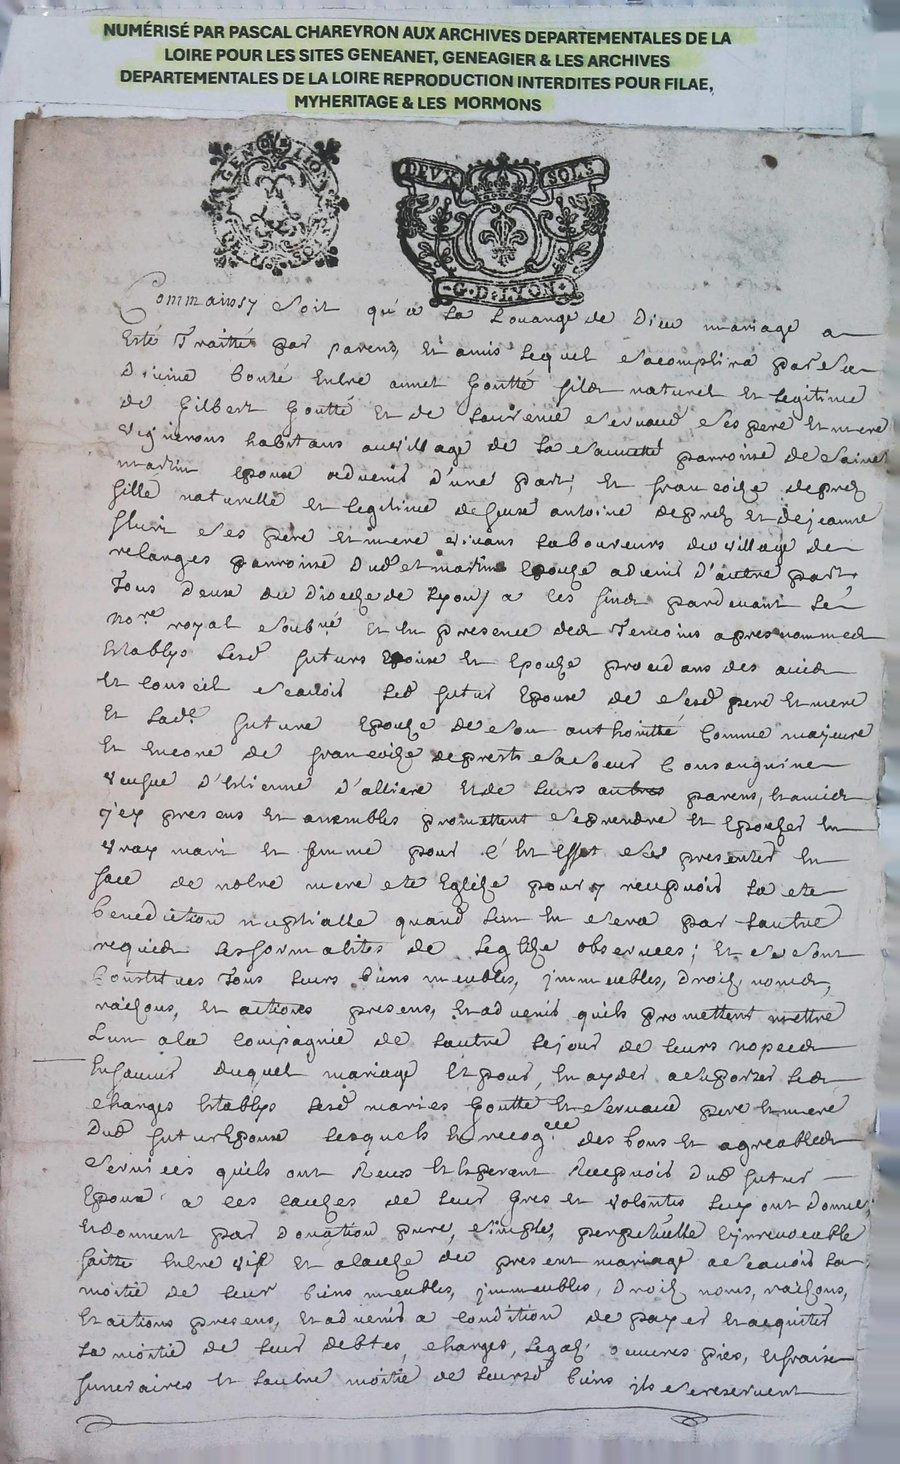 NUMÉRISÉ PAR PASCAL CHAREYRON AUX ARCHIVES DEPARTEMENTALES DE LA
LOIRE POUR LES SITES GENEANET, GENEAGIER & LES ARCHIVES
DEPARTEMENTALES DE LA LOIRE REPRODUCTION INTERDITES POUR FILAE,
MYHERITAGE & LES MORMONS
GEN DE LION
DEVX SOLS
G. D. LYON
Comme ainsy soit qu'a la Louange de Dieu mariage a
Esté Traitté par parens, Et amis lequel s'acomplira par sa
Divine bonté Entre annet Goutte fils naturel Et legitime
de Gilbert Goutte Et de servaud ses pere Et mere
vignerons habitans au village de la parroisse de Saint
martin Epoux advenir d'une part, Et francoise deprez
fille naturelle Et legitime de feux antoine deprez Et de jeanne
ses pere Et mere vivans laboureurs du village de
relanges parroisse Dud st martin Epouze advenir d'autre part
Tous deux du Dioceze de Lyon / a ces fins pardevant le
No.re royal soub.né Et En presence des Temoins apres nommes
Establys lesd futurs Epoux Et Epouze procedans des avis
Et Conseil scavoir led futur Epoux de sesd pere Et mere
Et lad.e future Epouze de son authoritté Comme majeure
Et Encore de francoize deprest sa soeur Consanguine
veufve D'Estienne D'alliere Et de leurs autres parens, Et amis
j'cy presens Et assembles promettent se prendre Et Epouzer En
vray mary Et femme pour C'est Effet se presenter En
face de notre mere ste Eglize pour y recepvoir la ste
benediction nuptialle quand L'un En sera par L'autre
requis les formalites de L'eglize observees; Et se sont
Constitues Tous leurs biens meubles, jmmeubles, Droitz, noms,
raisons, Et actions presens, Et advenir quils promettent mettre
L'un a la Compagnie de L'autre le jour de leurs nopces
En faveur duquel mariage Et pour En ayder a suporter les
charges Establys lesd maries Goutte Et servaud pere Et mere
Dud futur Epoux lesquels des bons Et agreables
services quils ont Receus Et Esperent Recepvoir Dud futur
Epoux a ces causes de leur gres Et volontes luy ont Donné,
Et donnent par Donation pure, simple, perpetuelle Et jrrevocable
faitte Entre vifs Et a cause du present mariage a scavoir la
moitié de leur biens meubles, jmmeubles, Droitz noms, raisons,
Et actions presens, Et advenir a Condition de payer Et acquiter
La moitié de leur debtes, charges, legatz oeuvres pies, Et frais
funeraires Et L'autre moitié de leursd biens ils se reservent